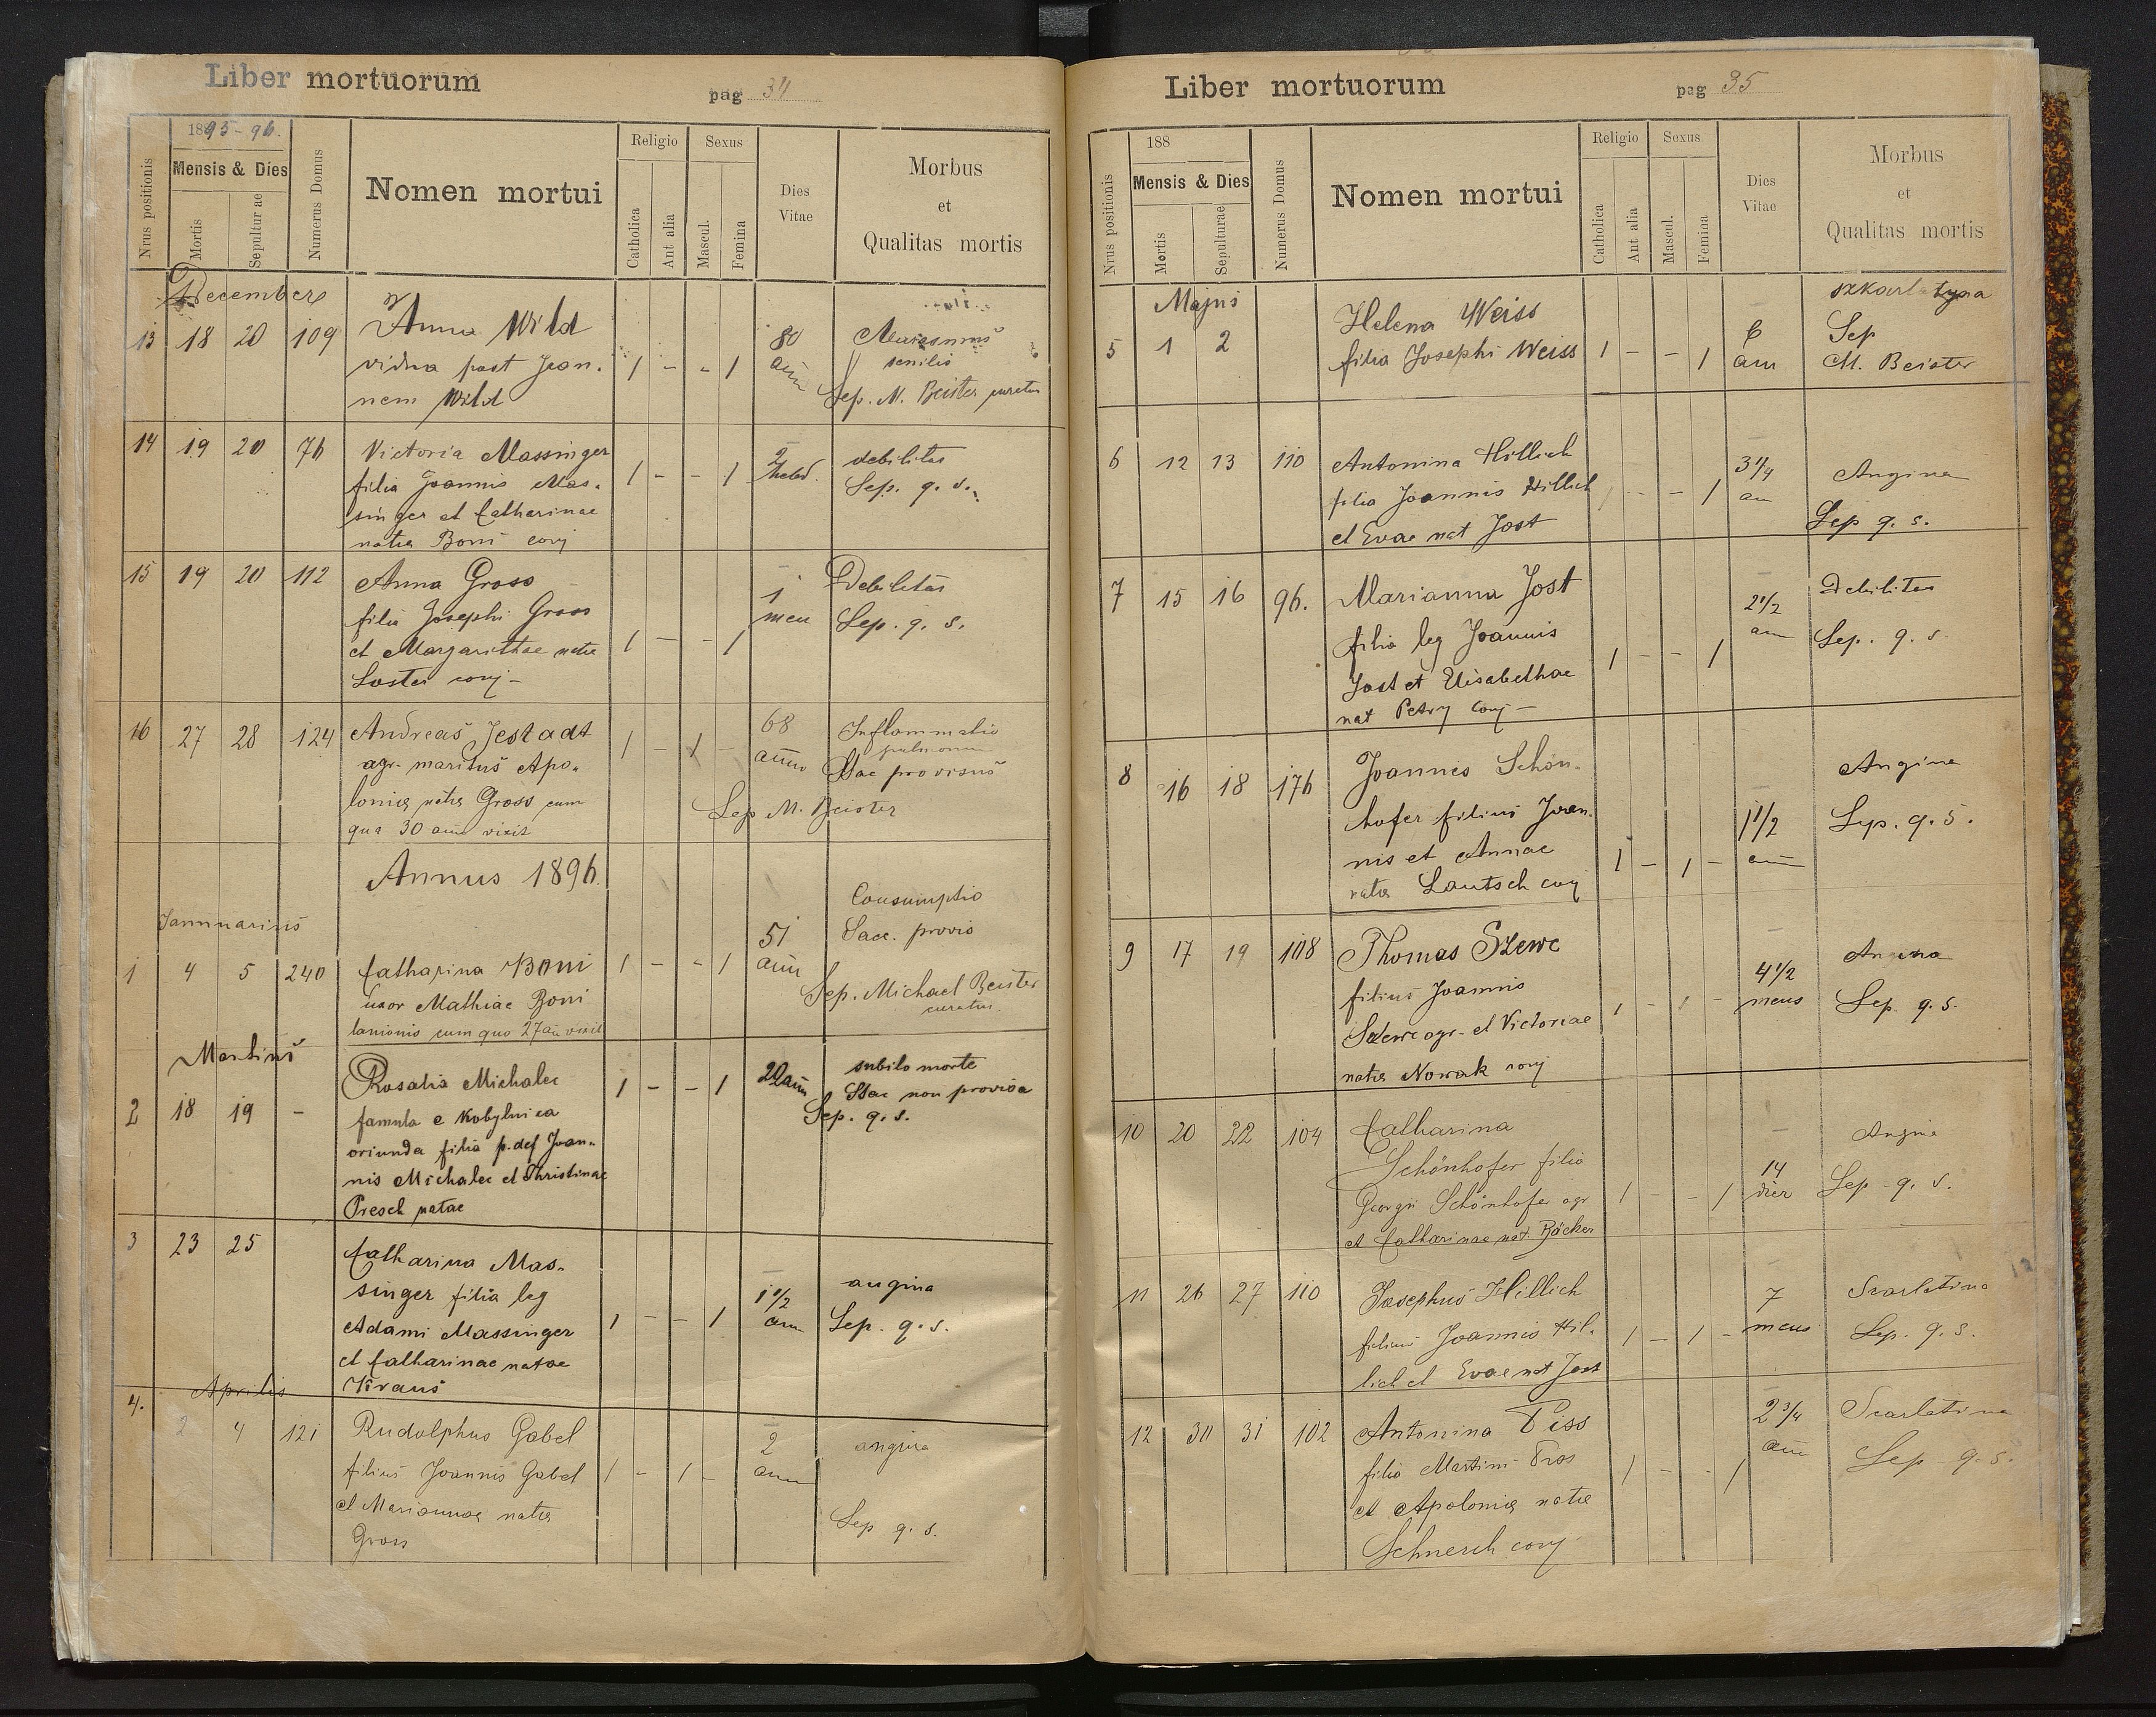 Liber mortuorum
pag 34
1895-96.
Mensis & Dies
Nrus positionis
Mortis
Sepulturae
Numerus Domus
Nomen mortui
Religio
Catholica
Aut alia
Sexus
Mascul.
Femina
Dies
Vitae
Morbus
et
Qualitas mortis
December
13 18 20 109 Anna Wild 80 Marasmus
vidua post Joan- 1 - - 1 ann senilis
nem Wild Sep. M. Beister curatus
14 19 20 76 Victoria Massinger 2 debilitas
filia Joannis Mas- 1 - - 1 hebd. Sep. q. s.
singer et Catharinae
natae Boni conj
15 19 20 112 Anna Gross 1 Debilitas
filia Josephi Gross men Sep. q. s.
et Margarithae natae 1 - - 1
Loster conj -
16 27 28 124 Andreas Jestadt 1 - 1 - 68 Inflammatio
agr- maritus Apo- anno pulmonum
loniae natae Gross cum Sac provisus
qua 30 ann vixit Sep M. Beister
Annus 1896.
Jannuarius
Consumptio
51 Sacr. provis
1 4 5 240 Catharina Boni 1 - - 1 ann
uxor Mathiae Boni Sep. Michael Beister
lanionis cum quo 27 an vixit curatus.
Martius
2 18 19 - Rosalia Michalec 1 - - 1 20 ann subito morte
famula e Kobylnica Sac non provisa
oriunda filia p. def Joan- Sep. q. s.
nis Michalec et Christinae
Presch natae
3 23 25 Catharina Mas-
singer filia leg 1 1/2 angina
Adami Massinger 1 - - 1 ann Sep. q. s.
et Catharinae natae
Kraus
Aprilis
4. 2 4 121 Rudolphus Gabel 2 angina
filius Joannis Gabel 1 - 1 - ann
et Mariannae natae
Gross Sep q. s.
Liber mortuorum
pag 35
188
Mensis & Dies
Nrus positionis
Mortis
Sepulturae
Numerus Domus
Nomen mortui
Religio
Catholica
Aut alia
Sexus
Mascul.
Femina
Dies
Vitae
Morbus
et
Qualitas mortis
Majus
szkarlatyna
5 1 2 Helena Weiss 6 Sep
filia Josephi Weiss 1 - - 1 ann M. Beister
6 12 13 110 Antonina Hillich 3 1/4 Angina
filia Joannis Hillich 1 - - 1 an
et Evae nat Jost Sep q. s.
7 15 16 96. Marianna Jost 2 1/2 Debilitas
filia leg Joannis ann Sep. q. s
Jost et Elisabethae 1 - - 1
nat Petry conj -
8 16 18 176 Joannes Schön- Angina
hofer filius Joan- 1 1/2 Sep. q. s.
nis et Annae 1 - 1 - ann
natae Lautsch conj
9 17 19 108 Thomas Szewc Angina
filius Joannis 4 1/2
Szewc agr- et Victoriae 1 - 1 - mens Sep. q. s.
natae Nowak conj
10 20 22 104 Catharina Angina
Schönhofer filia 14
Georgii Schönhofer agr 1 - - 1 dies Sep - q. s.
et Catharinae nat. Bäcker
11 26 27 110 Josephus Hillich 7 Scarlatina
filius Joannis Hil- 1 - 1 - mens Sep. q. s.
lich et Evae nat Jost
12 30 31 102 Antonina Piss 2 3/4 Scarlatina
filia Martini 1 - - 1 ann Sep q. s.
et Apoloniae natae
Schnerch conj